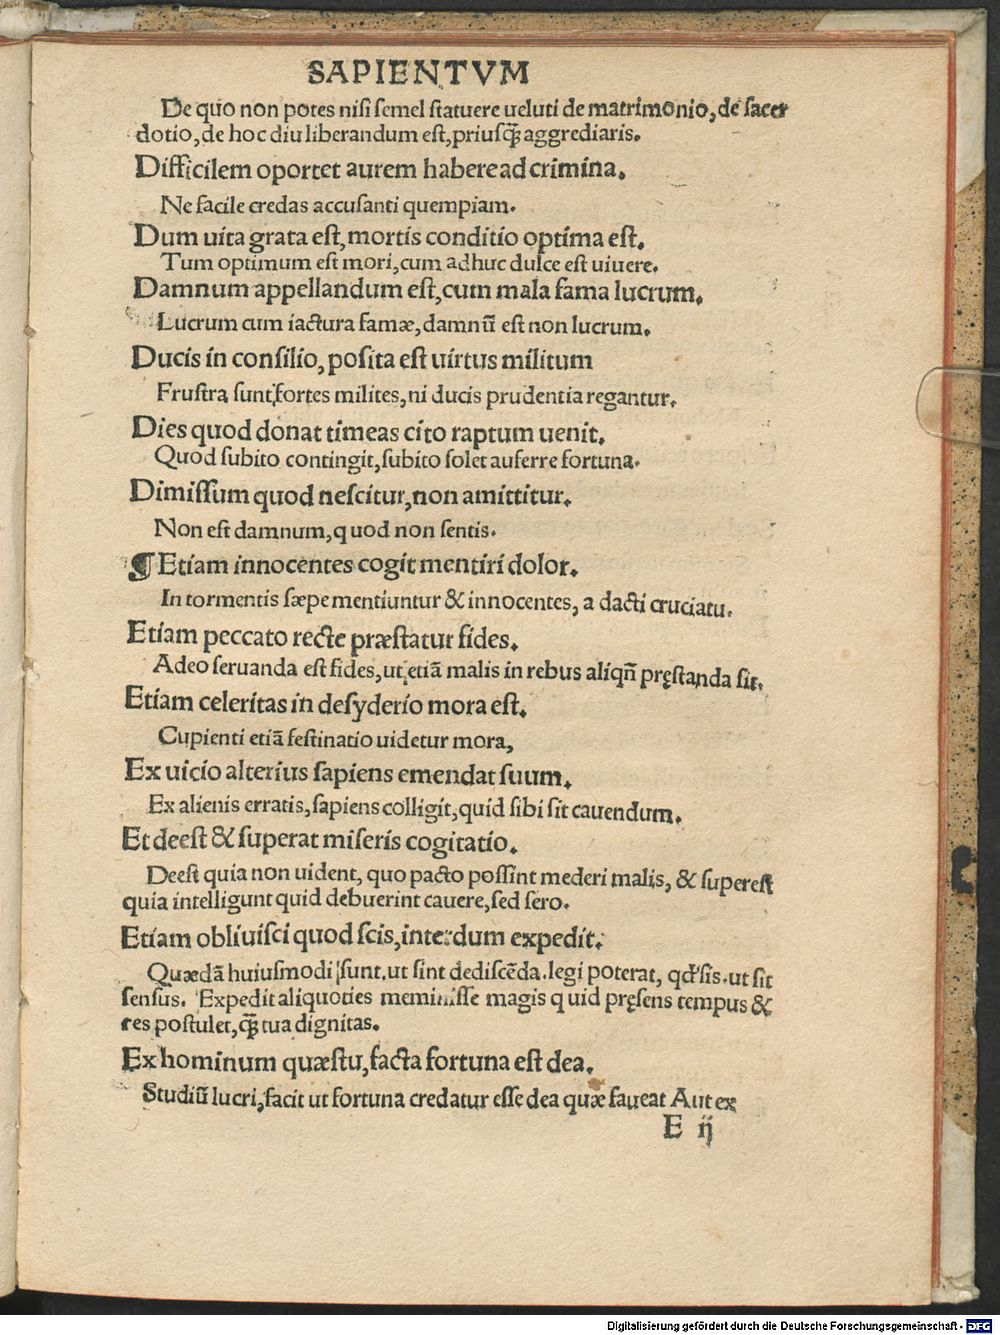 SAPIENTVM
De quo non potes nisi semel statuere ueluti de matrimonio, de sacer
dotio, de hoc diu liberandum est, priusq̃ aggrediaris.
Difficilem oportet aurem habere ad crimina.
Ne facile credas accusanti quempiam.
Dum uita grata est, mortis conditio optima est.
Tum optimum est mori, cum adhuc dulce est uiuere.
Damnum appellandum est, cum mala fama lucrum.
Lucrum cum iactura famæ, damnũ est non lucrum.
Ducis in consilio, posita est uirtus militum
Frustra sunt fortes milites, ni ducis prudentia regantur.
Dies quod donat timeas cito raptum uenit.
Quod subito contingit, subito solet auferre fortuna.
Dimissum quod nescitur, non amittitur.
Non est damnum, quod non sentis.
¶ Etiam innocentes cogit mentiri dolor.
In tormentis sæpe mentiuntur & innocentes, adacti cruciatu.
Etiam peccato recte præstatur fides.
Adeo seruanda est fides, ut etiã malis in rebus aliqñ pręstanda sit.
Etiam celeritas in desyderio mora est.
Cupienti etiã festinatio uidetur mora,
Ex uicio alterius sapiens emendat suum.
Ex alienis erratis, sapiens colligit, quid sibi sit cauendum.
Et deest & superat miseris cogitatio.
Deest quia non uident, quo pacto possint mederi malis, & superest
quia intelligunt quid debuerint cauere, sed sero.
Etiam obliuisci quod scis, interdum expedit.
Quædã huiusmodi sunt. ut sint dediscẽda. legi poterat, qđ sis. ut sit
sensus. Expedit aliquoties meminisse magis quid pręsens tempus &
res postulet, q̃ tua dignitas.
Ex hominum quæstu, facta fortuna est dea.
Studiũ lucri, facit ut fortuna credatur esse dea quæ faueat Aut ex
E ij
Digitalisierung gefördert durch die Deutsche Forschungsgemeinschaft - DFG